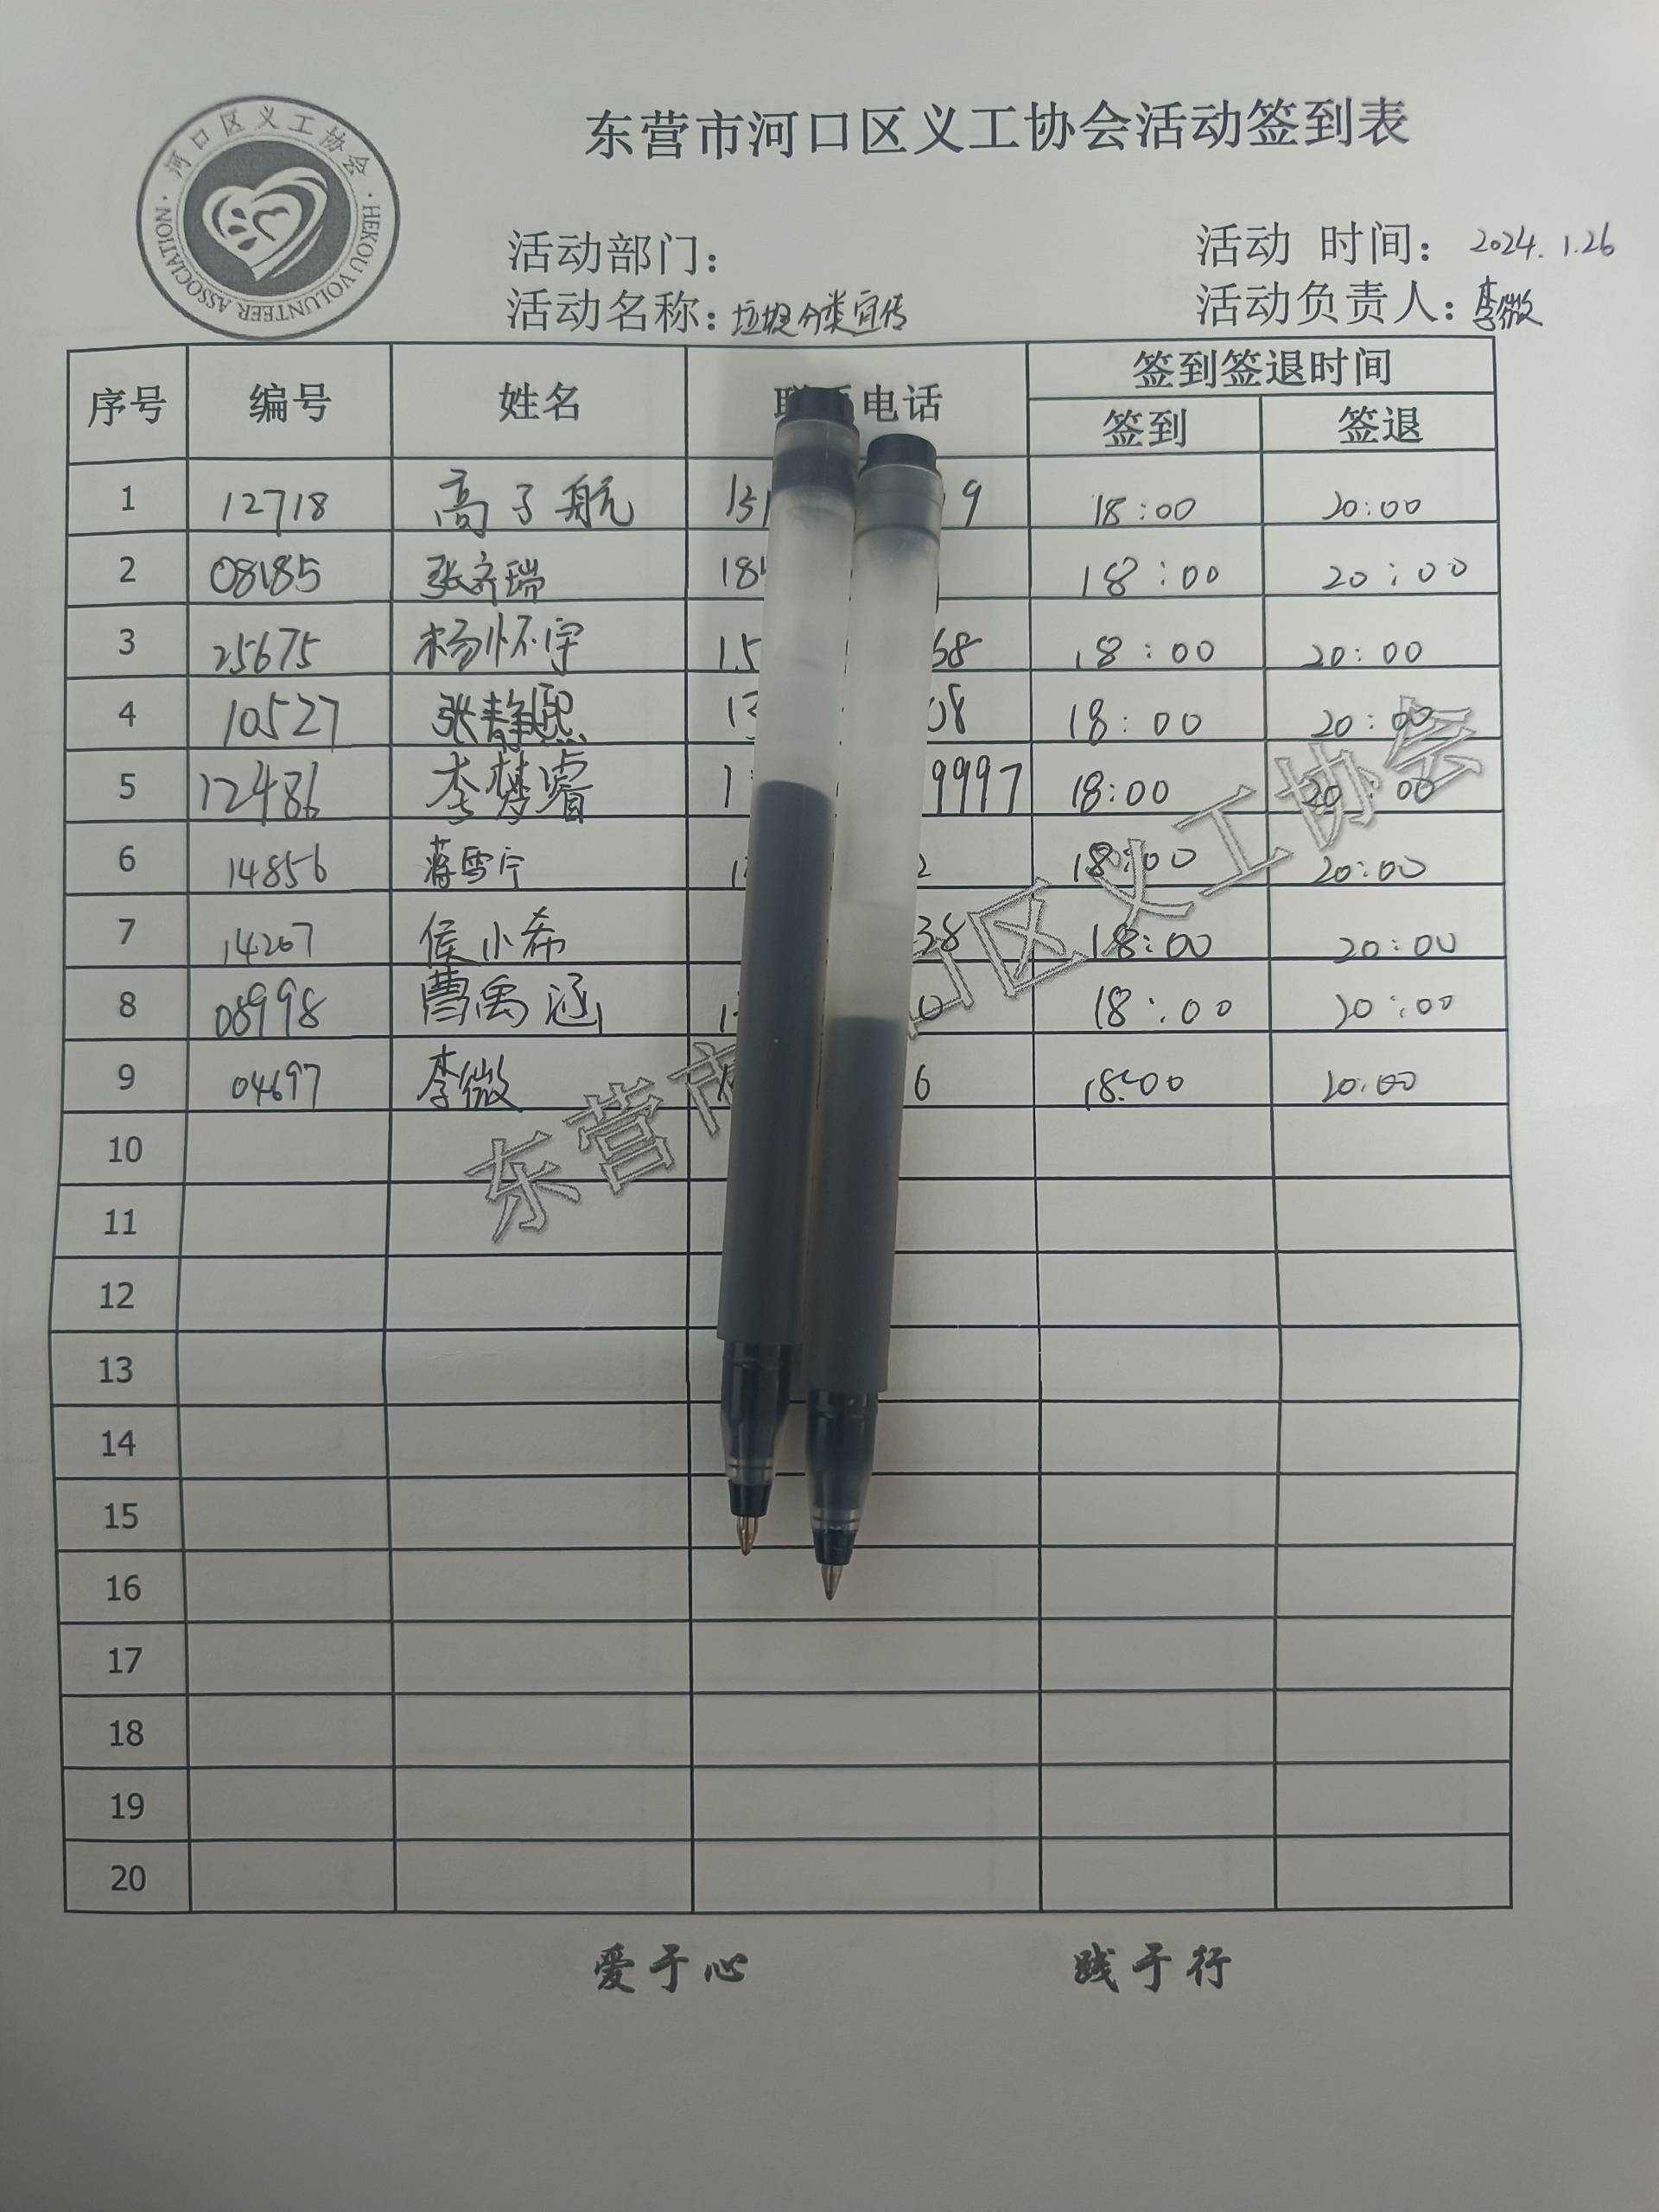 东营市河口区义工协会活动签到表
河口区义工协会
HEKOU VOLUNTEER ASSOCIATION
活动部门： 活动 时间： 2024.1.26
活动名称：垃圾分类宣传 活动负责人：李微
序号 编号 姓名 电话 签到签退时间
签到 签退
1 12718 高子航 131 9 18:00 20:00
2 08185 张齐瑞 18 18:00 20:00
3 25675 杨怀宇 15 68 18:00 20:00
4 10527 张静熙 13 08 18:00 20:00
5 12486 李梦睿 1 9997 18:00 20:00
6 14856 蒋雪宁 1 2 18:00 20:00
7 14207 侯小希 38 18:00 20:00
8 08998 曹禹涵 1 0 18:00 20:00
9 04697 李微 6 18:00 20:00
10
11
12
13
14
15
16
17
18
19
20
东营 区义工协会
爱于心 践于行